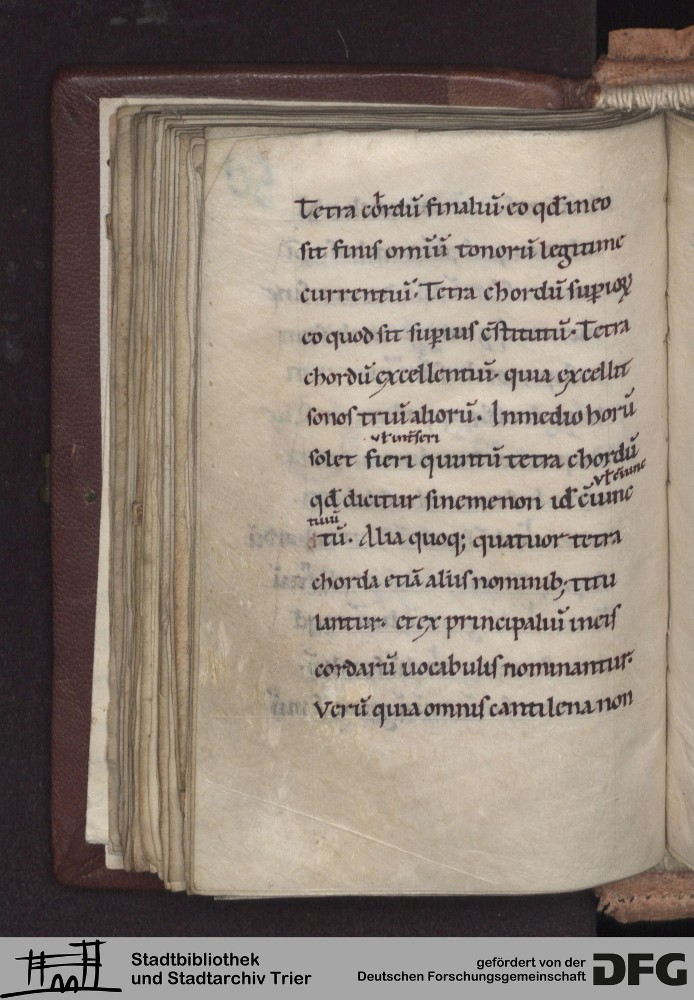 Tetra chordū finaliū· eo qđ in eo
sit finis omīū tonorū legitime
currentiū· Tetra chordū supioꝝ
eo quod sit supius cstitutū· Tetra
chordū excellentiū· quia excellit
sonos triū aliorū· In medio horū
vł inseri
solet fieri quintū tetra chordū
vł ciunc
qđ dicitur sinemenon id ciunc
tiuū
tū· Alia quoq; quatuor tetra
chorda etiā aliis nominib; titu
lantur· et ex principaliū in eis
cordarū uocabulis nominantur·
Verū quia omnis cantilena non
Stadtbibliothek
und Stadtarchiv Trier
gefördert von der
Deutschen Forschungsgemeinschaft
DFG